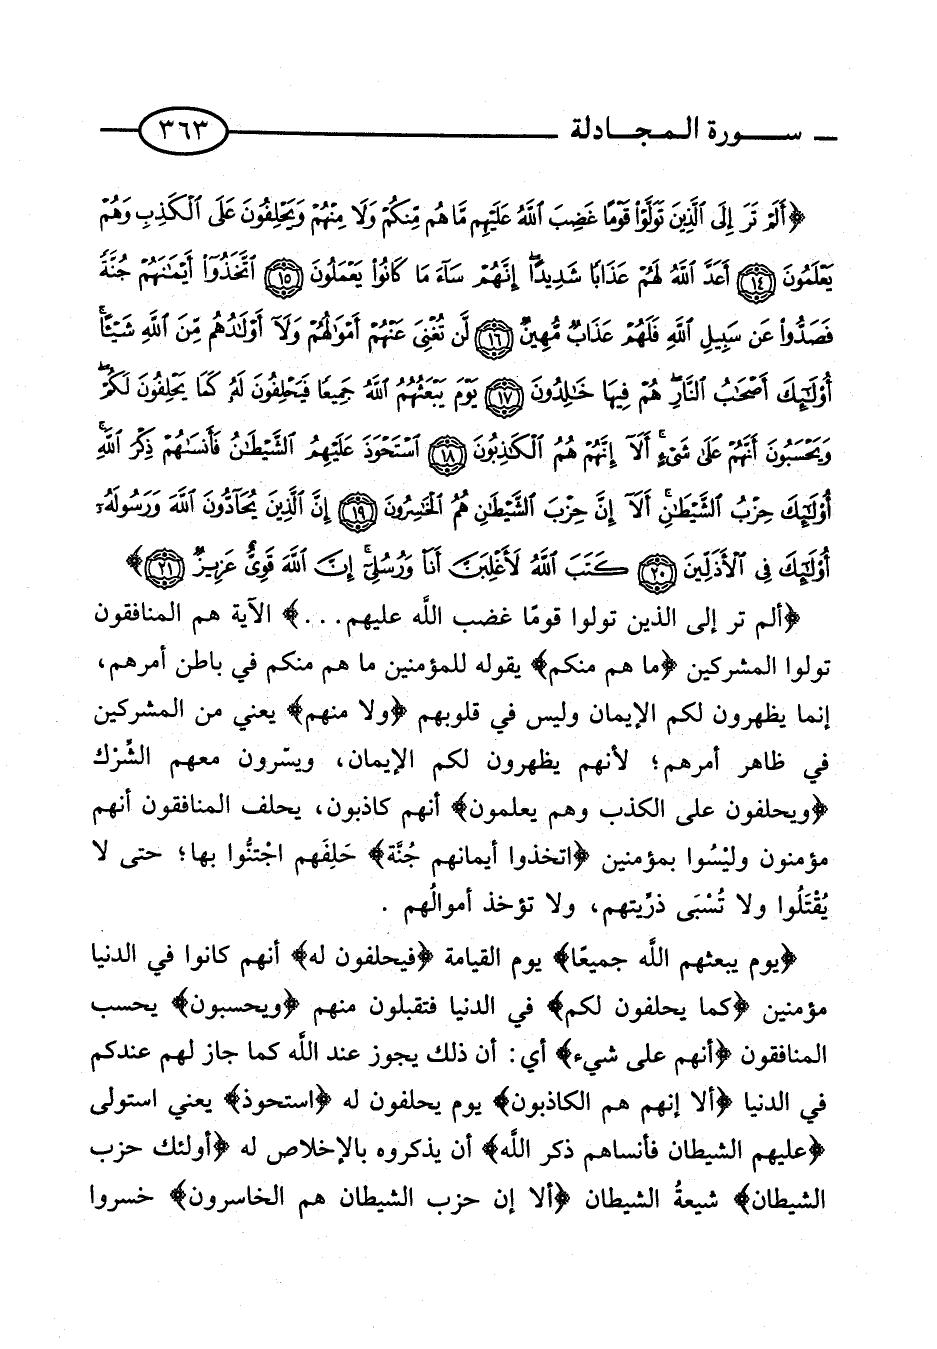 سورة المجادلة ٣٦٣
﴿أَلَمْ تَرَ إِلَى ٱلَّذِينَ تَوَلَّوْا۟ قَوْمًا غَضِبَ ٱللَّهُ عَلَيْهِم مَّا هُم مِّنكُمْ وَلَا مِنْهُمْ وَيَحْلِفُونَ عَلَى ٱلْكَذِبِ وَهُمْ
يَعْلَمُونَ ١٤ أَعَدَّ ٱللَّهُ لَهُمْ عَذَابًا شَدِيدًا ۖ إِنَّهُمْ سَآءَ مَا كَانُوا۟ يَعْمَلُونَ ١٥ ٱتَّخَذُوٓا۟ أَيْمَٰنَهُمْ جُنَّةً
فَصَدُّوا۟ عَن سَبِيلِ ٱللَّهِ فَلَهُمْ عَذَابٌ مُّهِينٌ ١٦ لَّن تُغْنِىَ عَنْهُمْ أَمْوَٰلُهُمْ وَلَآ أَوْلَٰدُهُم مِّنَ ٱللَّهِ شَيْـًٔا ۚ
أُو۟لَٰٓئِكَ أَصْحَٰبُ ٱلنَّارِ ۖ هُمْ فِيهَا خَٰلِدُونَ ١٧ يَوْمَ يَبْعَثُهُمُ ٱللَّهُ جَمِيعًا فَيَحْلِفُونَ لَهُۥ كَمَا يَحْلِفُونَ لَكُمْ ۖ
وَيَحْسَبُونَ أَنَّهُمْ عَلَىٰ شَىْءٍ ۚ أَلَآ إِنَّهُمْ هُمُ ٱلْكَٰذِبُونَ ١٨ ٱسْتَحْوَذَ عَلَيْهِمُ ٱلشَّيْطَٰنُ فَأَنسَىٰهُمْ ذِكْرَ ٱللَّهِ ۚ
أُو۟لَٰٓئِكَ حِزْبُ ٱلشَّيْطَٰنِ ۚ أَلَآ إِنَّ حِزْبَ ٱلشَّيْطَٰنِ هُمُ ٱلْخَٰسِرُونَ ١٩ إِنَّ ٱلَّذِينَ يُحَآدُّونَ ٱللَّهَ وَرَسُولَهُۥٓ
أُو۟لَٰٓئِكَ فِى ٱلْأَذَلِّينَ ٢٠ كَتَبَ ٱللَّهُ لَأَغْلِبَنَّ أَنَا۠ وَرُسُلِىٓ ۚ إِنَّ ٱللَّهَ قَوِىٌّ عَزِيزٌ ٢١﴾
﴿ألم تر إلى الذين تولوا قومًا غضب اللَّه عليهم...﴾ الآية هم المنافقون
تولوا المشركين ﴿ما هم منكم﴾ يقوله للمؤمنين ما هم منكم في باطن أمرهم،
إنما يظهرون لكم الإيمان وليس في قلوبهم ﴿ولا منهم﴾ يعني من المشركين
في ظاهر أمرهم؛ لأنهم يظهرون لكم الإيمان، ويسّرون معهم الشِّرْك
﴿ويحلفون على الكذب وهم يعلمون﴾ أنهم كاذبون، يحلف المنافقون أنهم
مؤمنون وليْسُوا بمؤمنين ﴿اتخذوا أيمانهم جُنَّة﴾ حَلِفَهم اجْتنُّوا بها؛ حتى لا
يُقْتَلُوا ولا تُسْبَى ذرِّيتهم، ولا تؤخذ أموالُهم .
﴿يوم يبعثهم اللَّه جميعًا﴾ يوم القيامة ﴿فيحلفون له﴾ أنهم كانوا في الدنيا
مؤمنين ﴿كما يحلفون لكم﴾ في الدنيا فتقبلون منهم ﴿ويحسبون﴾ يحسب
المنافقون ﴿أنهم على شيء﴾ أي: أن ذلك يجوز عند اللَّه كما جاز لهم عندكم
في الدنيا ﴿ألا إنهم هم الكاذبون﴾ يوم يحلفون له ﴿استحوذ﴾ يعني استولى
﴿عليهم الشيطان فأنساهم ذكر اللَّه﴾ أن يذكروه بالإخلاص له ﴿أولئك حزب
الشيطان﴾ شيعةُ الشيطان ﴿ألا إن حزب الشيطان هم الخاسرون﴾ خسروا